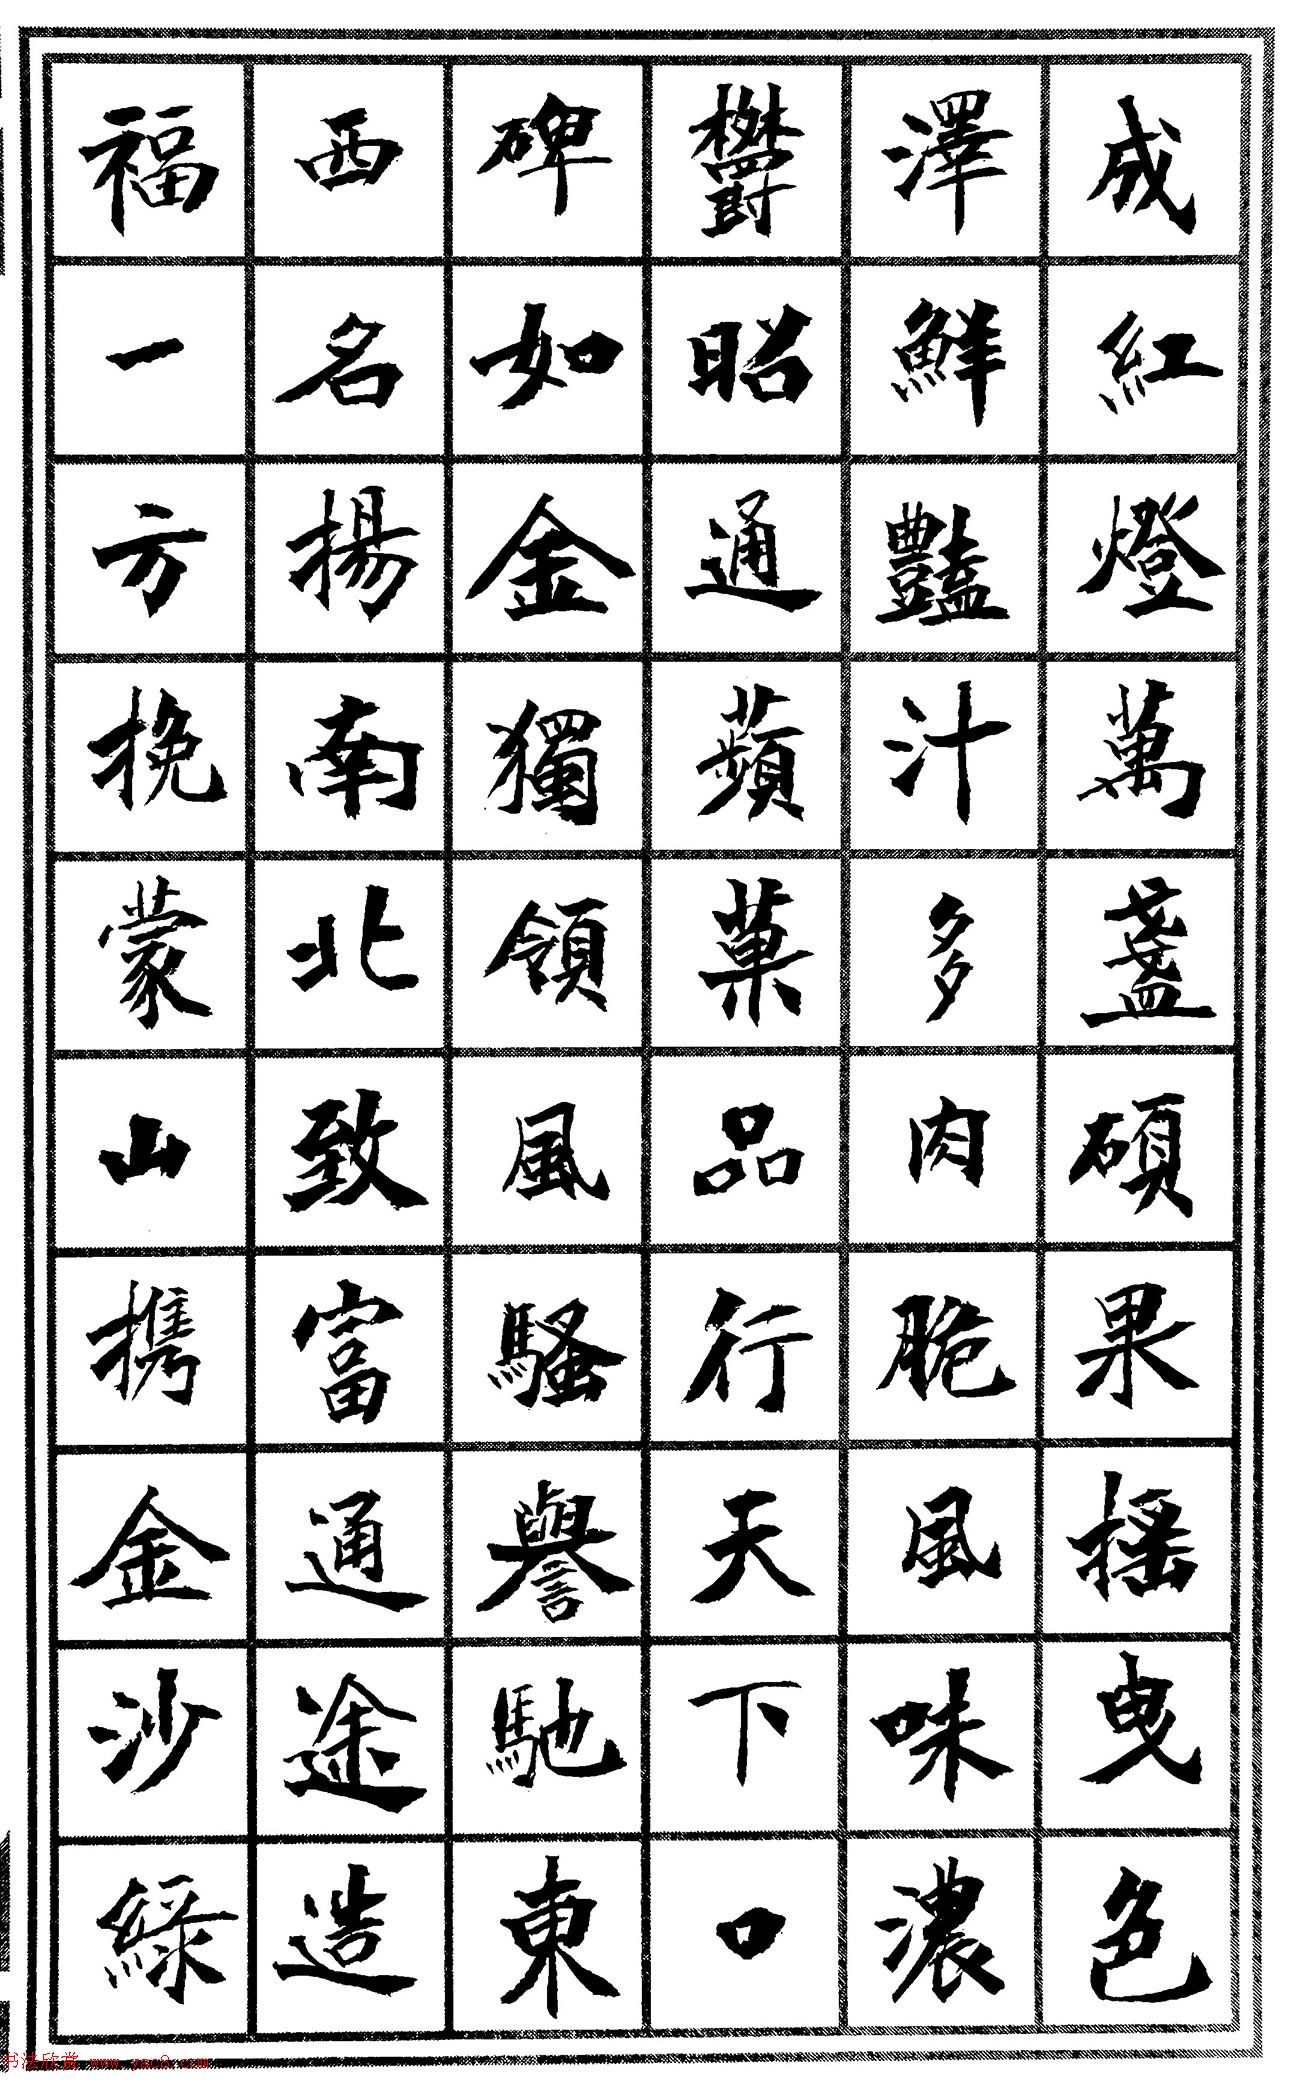 成紅燈萬盞碩果摇曳色
澤鮮豔汁多肉脆風味濃
鬱昭通蘋菓品行天下口
碑如金獨領風騷譽馳東
西名揚南北致富通途造
福一方挽蒙山携金沙綠
书法欣赏 www.yac8.com